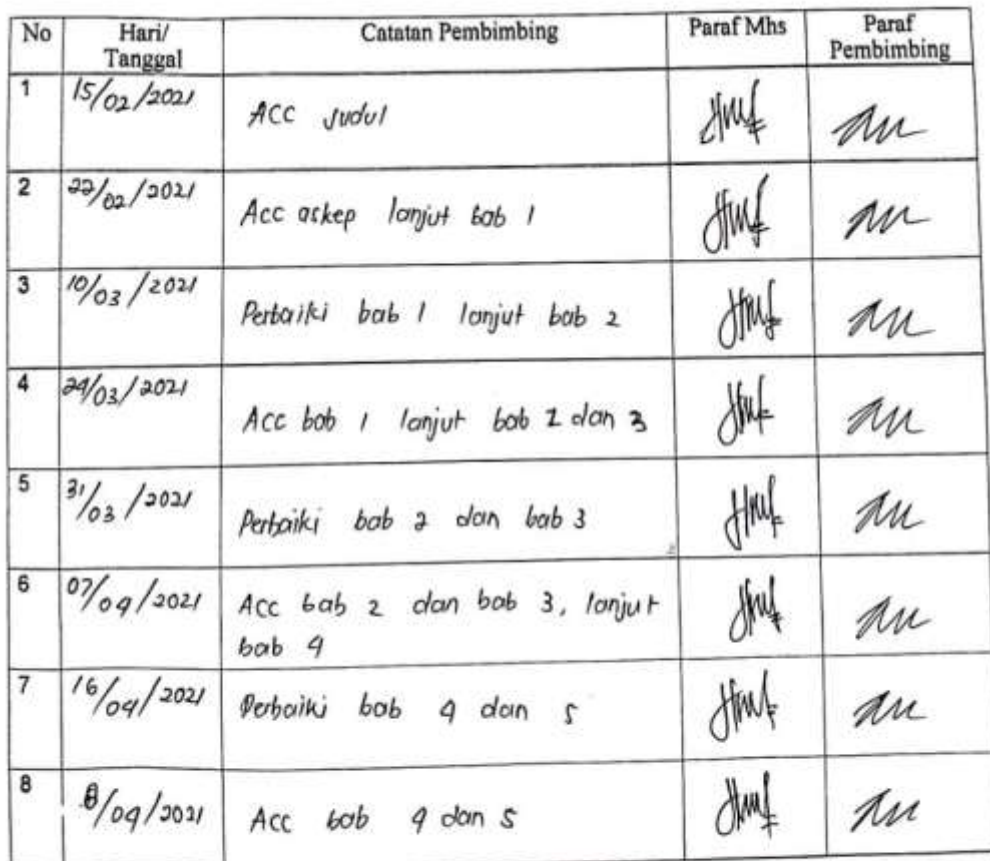 No Hari/ Tanggal Catatan Pembimbing Paraf Mhs Paraf Pembimbing
1 15/02/2021 ACC Judul
2 22/02/2021 Acc askep lanjut bab 1
3 10/03/2021 Perbaiki bab 1 lanjut bab 2
4 24/03/2021 Acc bab 1 lanjut bab 2 dan 3
5 31/03/2021 Perbaiki bab 2 dan bab 3
6 07/04/2021 Acc bab 2 dan bab 3, lanjut
bab 4
7 16/04/2021 Perbaiki bab 4 dan 5
8 /04/2021 Acc bab 4 dan 5